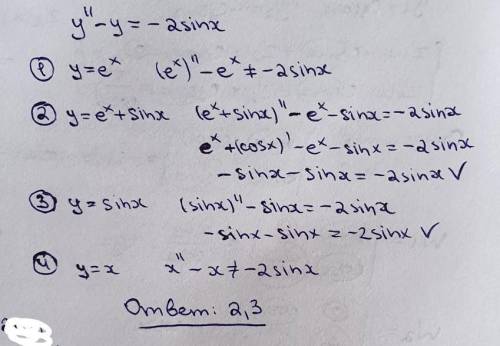 y'' - y = -2sinx
① y = eˣ (eˣ)'' - eˣ ≠ -2sinx
② y = eˣ + sinx (eˣ + sinx)'' - eˣ - sinx = -2sinx
eˣ + (cosx)' - eˣ - sinx = -2sinx
-sinx - sinx = -2sinx √
③ y = sinx (sinx)'' - sinx = -2sinx
-sinx - sinx = -2sinx √
④ y = x x'' - x ≠ -2sinx
Ответ: 2,3